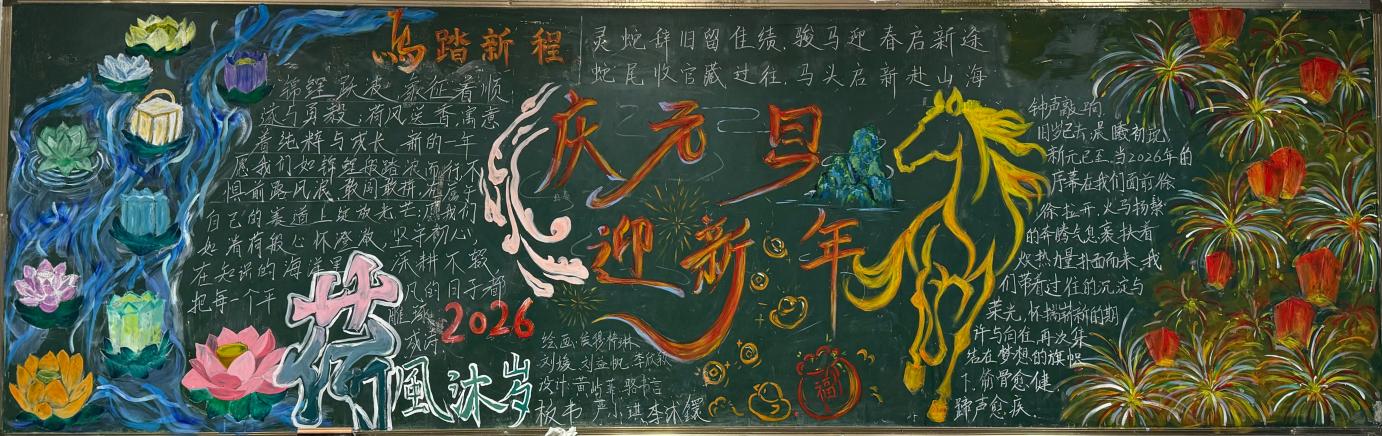 马踏新程
灵蛇辞旧留佳绩，骏马迎春启新途
蛇尾收官藏过往，马头启新赴山海
锦鲤跃波 象征着顺
遂与勇毅；荷风送香寓意
着纯粹与成长 新的一年
愿我们如锦鲤般踏浪而行不
惧前路风浪 敢闯敢拼 在属于
自己的赛道上绽放光芒；愿我们
如清荷般心怀澄澈，坚守初心
在知识的海洋里 深耕不辍
把每一个平 风的日子都
成诗
庆元旦
迎新年
2026
荷风沐岁
绘画
刘媛 刘益帆 李欣
设计：黄
板书 严小琪 李沐镁
福
钟声敲响
旧岁已去，晨曦初绽
新元已至，当2026年的
序幕在我们面前徐
徐拉开，火马扬鬃
的奔腾气息裹挟着
炽热力量扑面而来，我
们带着过往的沉淀与
荣光，怀揣崭新的期
许与向往，再次集
结在梦想的旗帜
下，骨愈健，
蹄声愈疾．